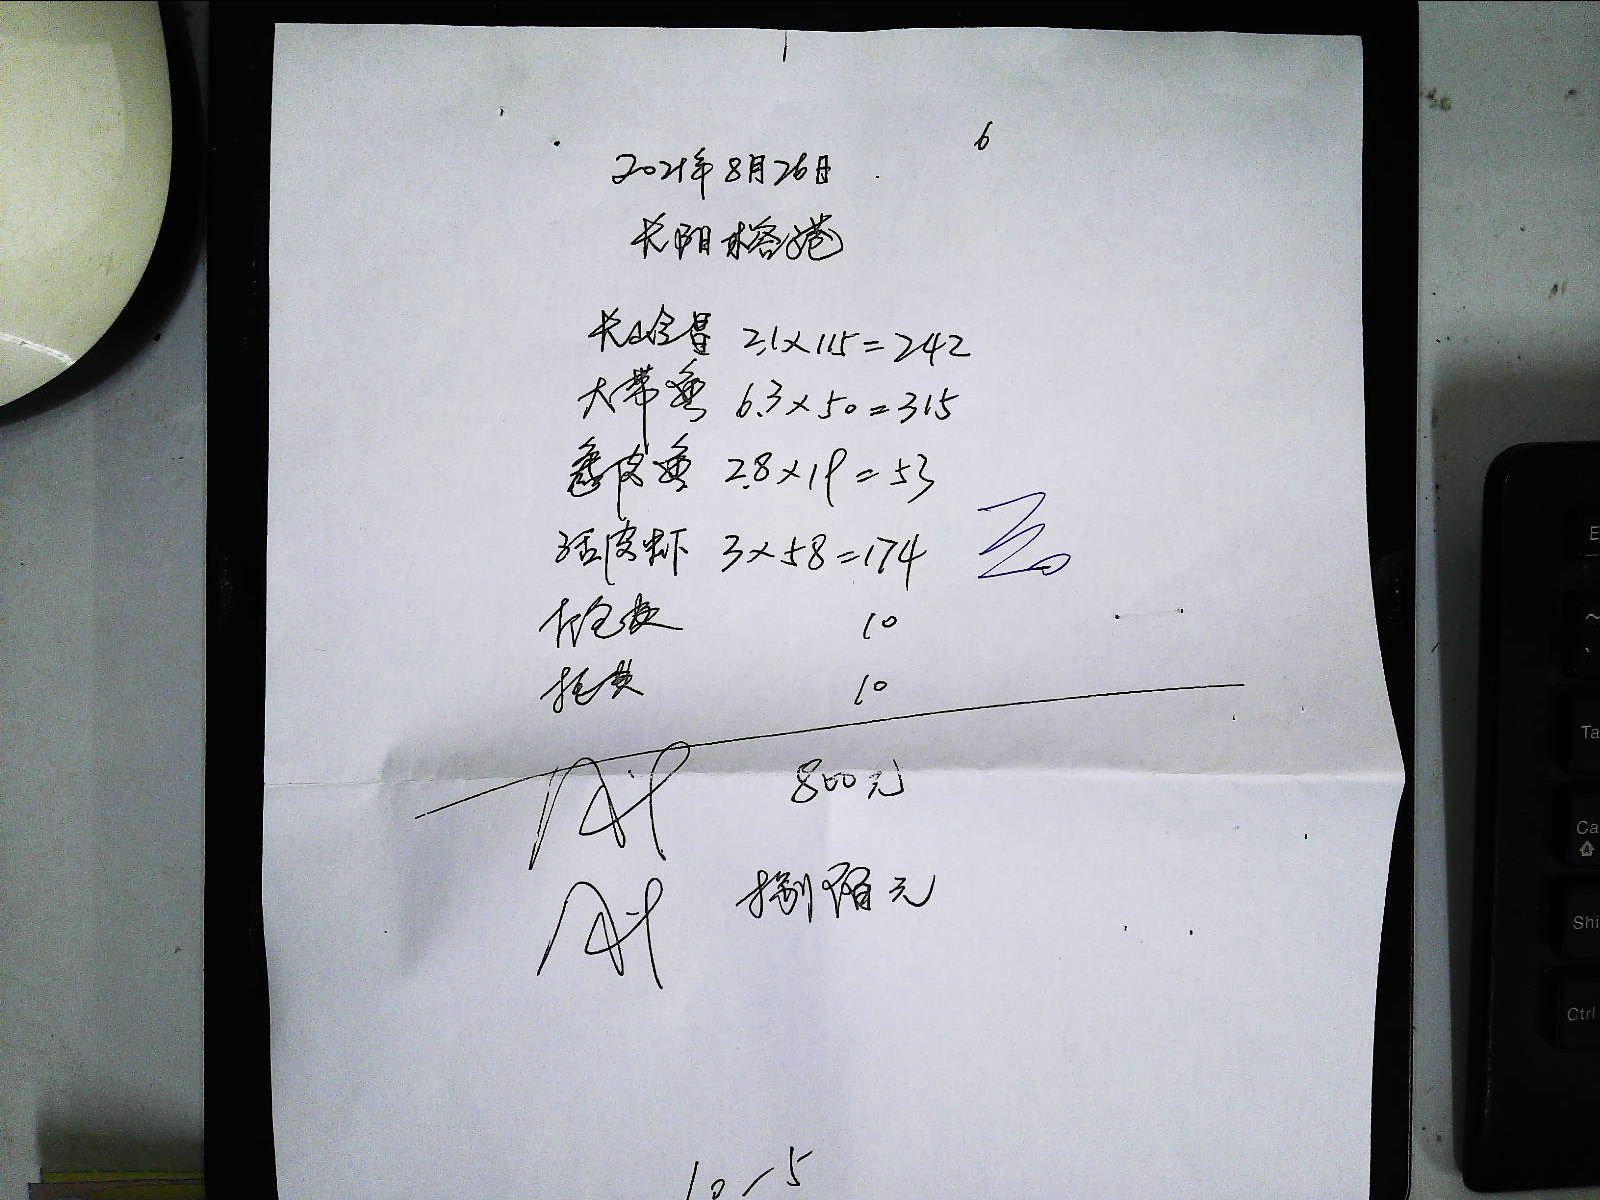 6
2021年8月26日
长阳榕港
长山仓昌 2.1×115=242
大带鱼 6.3×50=315
皮鱼 2.8×19=53
活皮虾 3×58=174
打包费 10
托费 10
800元
捌佰元
10-5
E
Ta
Ca
Shi
Ctrl